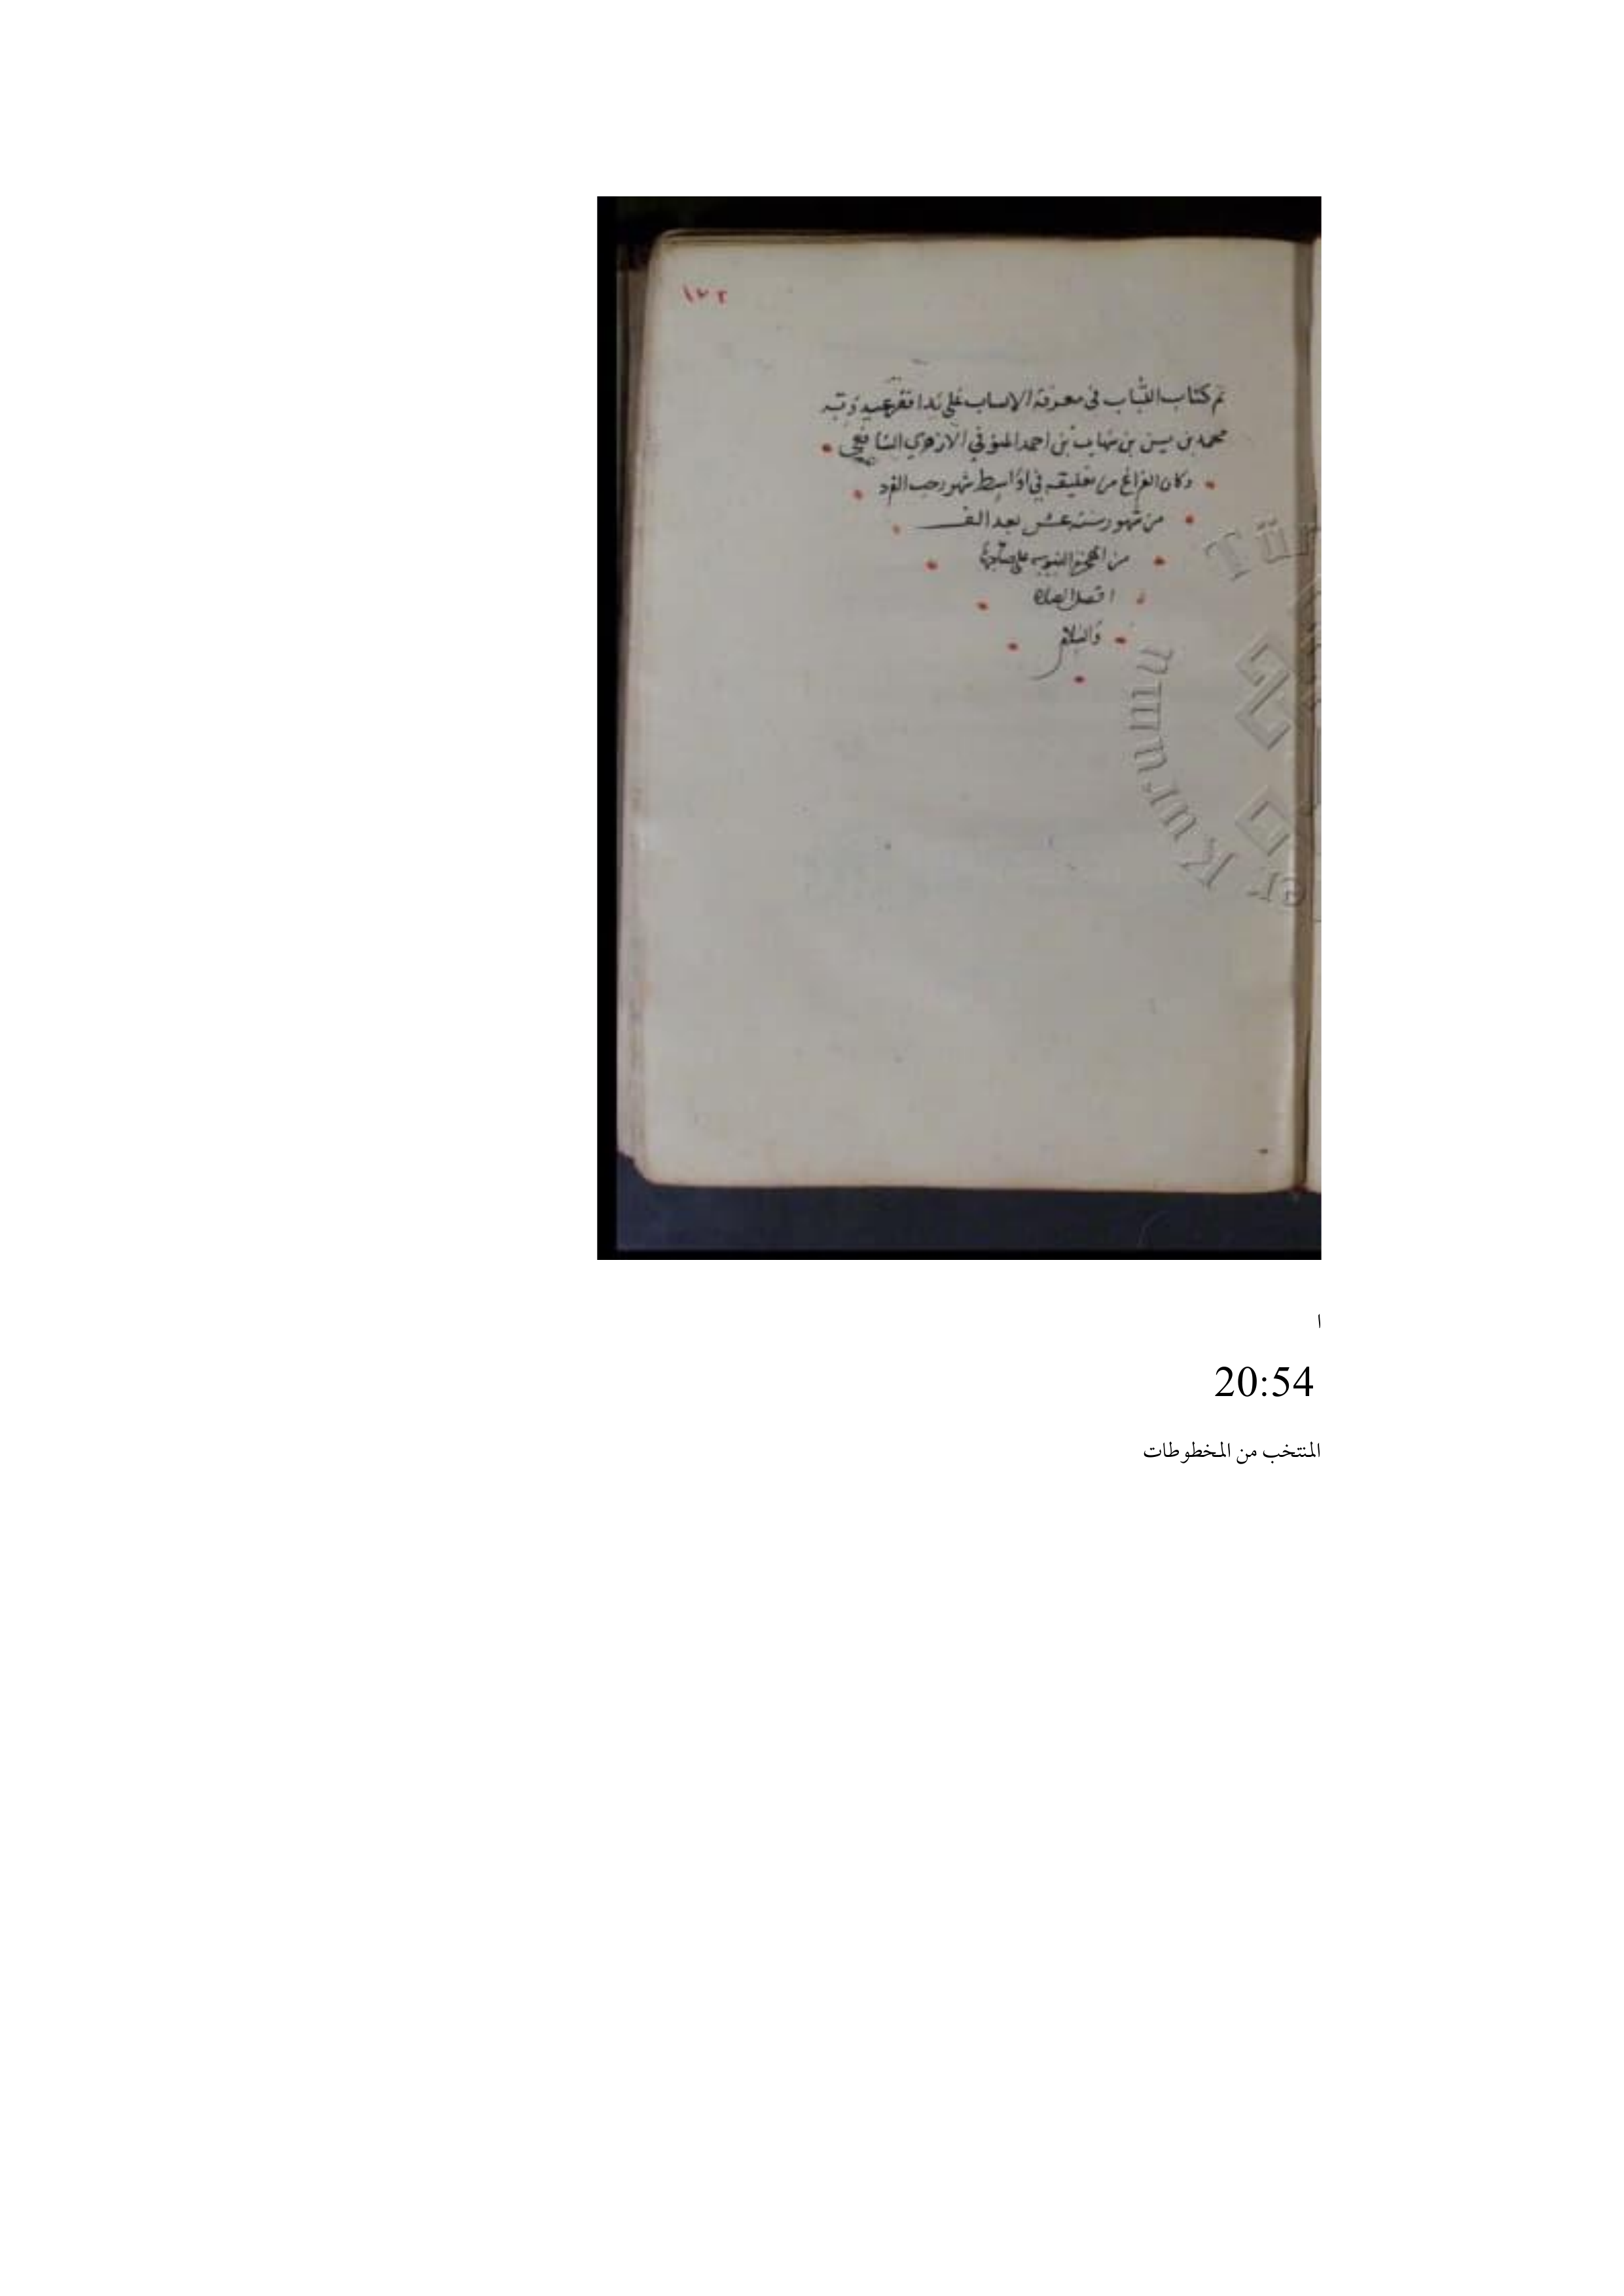 ١٧٢
تم كتاب اللباب فى معرفة الانساب على يد افقر عبيد ربه
محمد بن يس بن شهاب بن احمد المنوفي الازهري الشافعي
وكان الفراغ من تعليقه في اواسط شهر رجب الفرد
من شهور سنة عشر بعد الف
من الهجرة النبويه على صاحبها
افضل الصلاة
والسلام
Tü
er Kurumu
ا
20:54
المنتخب من المخطوطات